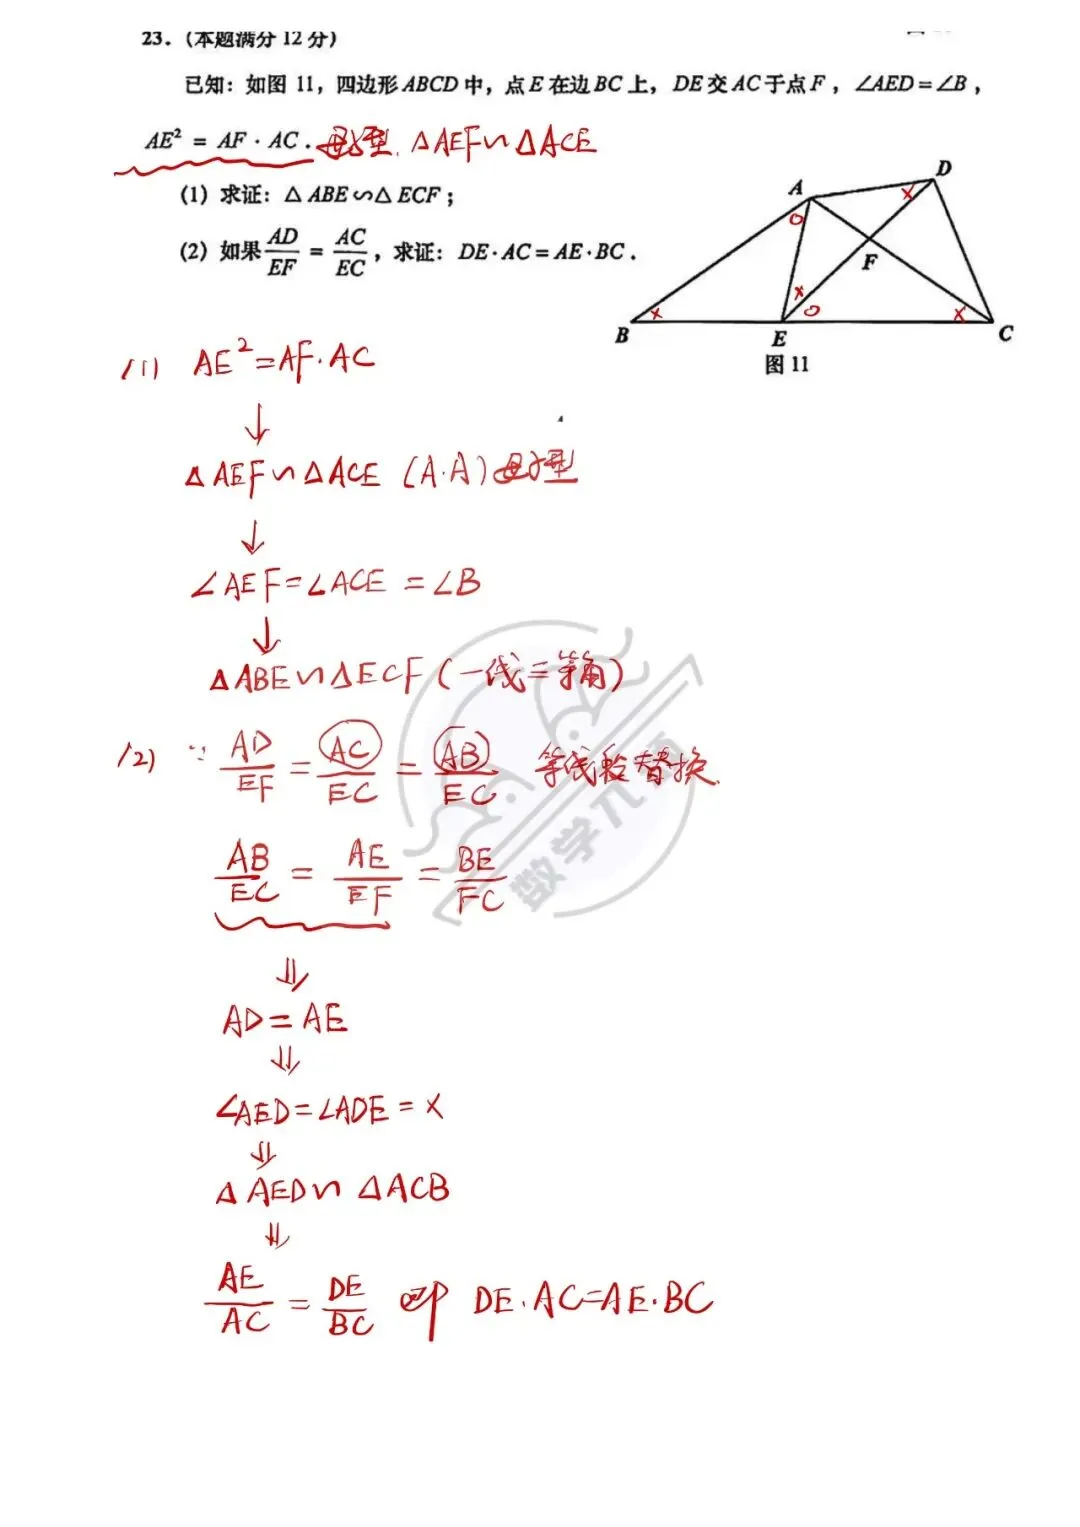 23.(本题满分 12 分)
已知：如图 11，四边形 ABCD 中，点 E 在边 BC 上，DE 交 AC 于点 F，∠AED=∠B，
AE² = AF · AC. 母子型. △AEF∽△ACE
(1) 求证：△ABE∽△ECF；
(2) 如果 AD/EF = AC/EC，求证：DE·AC=AE·BC.
A
D
F
B
E
C
图 11
(1) AE²=AF·AC
↓
△AEF∽△ACE (A.A) 母子型
↓
∠AEF=∠ACE =∠B
↓
△ABE∽△ECF (一线三等角)
(2) ∵ AD/EF = AC/EC = AB/EC 等线段替换.
AB/EC = AE/EF = BE/FC
⇓
AD=AE
⇓
∠AED=∠ADE=×
⇓
△AED∽△ACB
⇓
AE/AC = DE/BC 即 DE·AC=AE·BC
数学